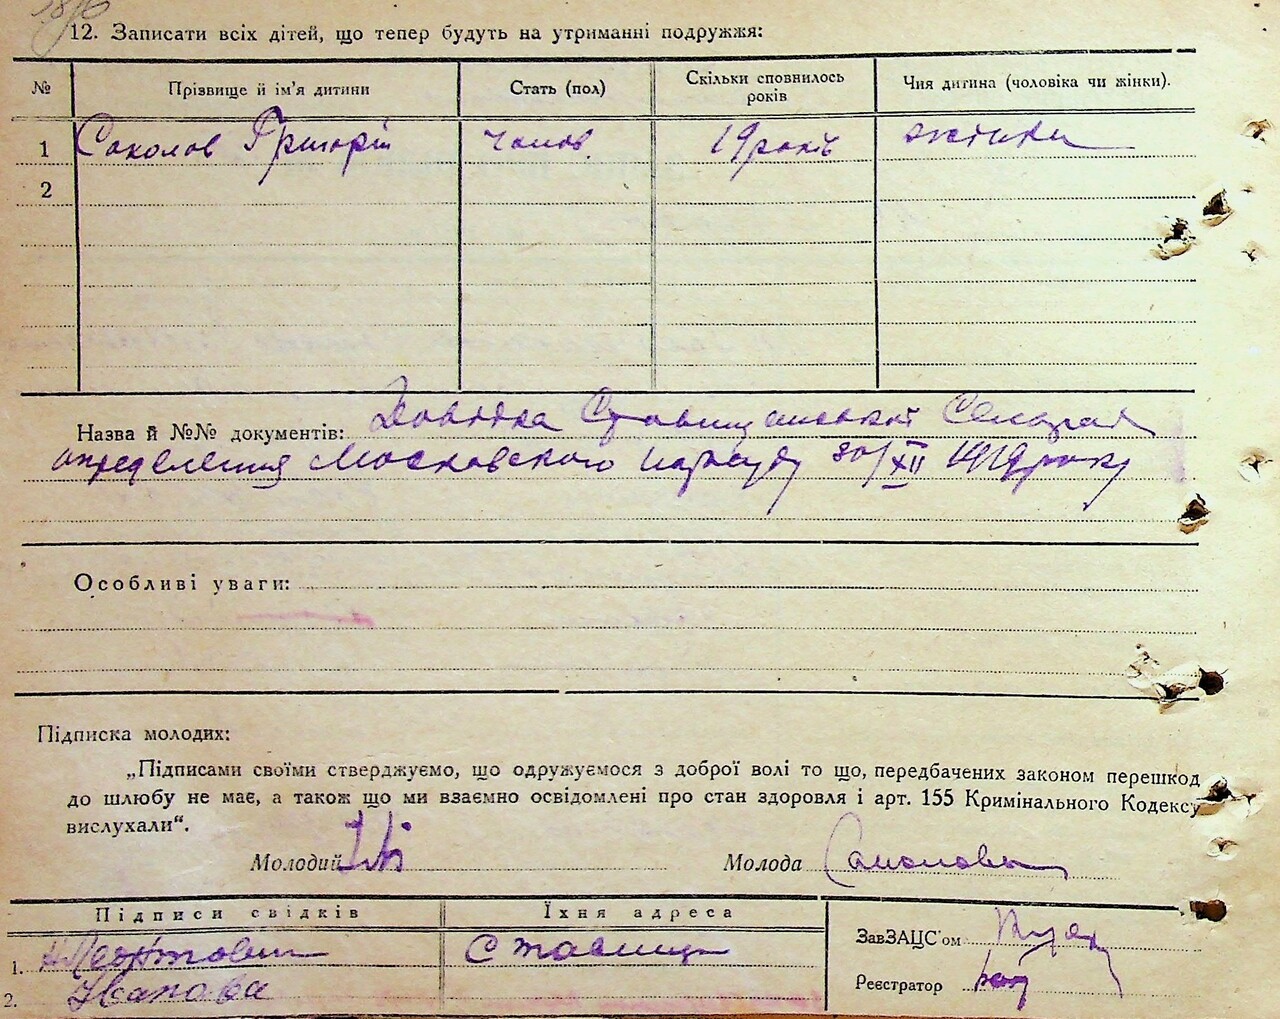 12. Записати всіх дітей, що тепер будуть на утриманні подружжя:
№ Прізвище й ім'я дитини Стать (пол) Скільки сповнилось років Чия дитина (чоловіка чи жінки).
1 Соколов Григорій чолов. 19 років жінки
2
Назва й №№ документів: Довідка Ставищенської Сельради
определения Московского нарсуду 30/XII 1929 року
Особливі уваги:
Підписка молодих:
„Підписами своїми стверджуємо, що одружуємося з доброї волі то що, передбачених законом перешкод
до шлюбу не має, а також що ми взаємно освідомлені про стан здоровля і арт. 155 Кримінального Кодексу
вислухали“.
Молодий Молода
Підписи свідків Їхня адреса
ЗавЗАЦС'ом
1. Ставище
Реєстратор
2. Іванова